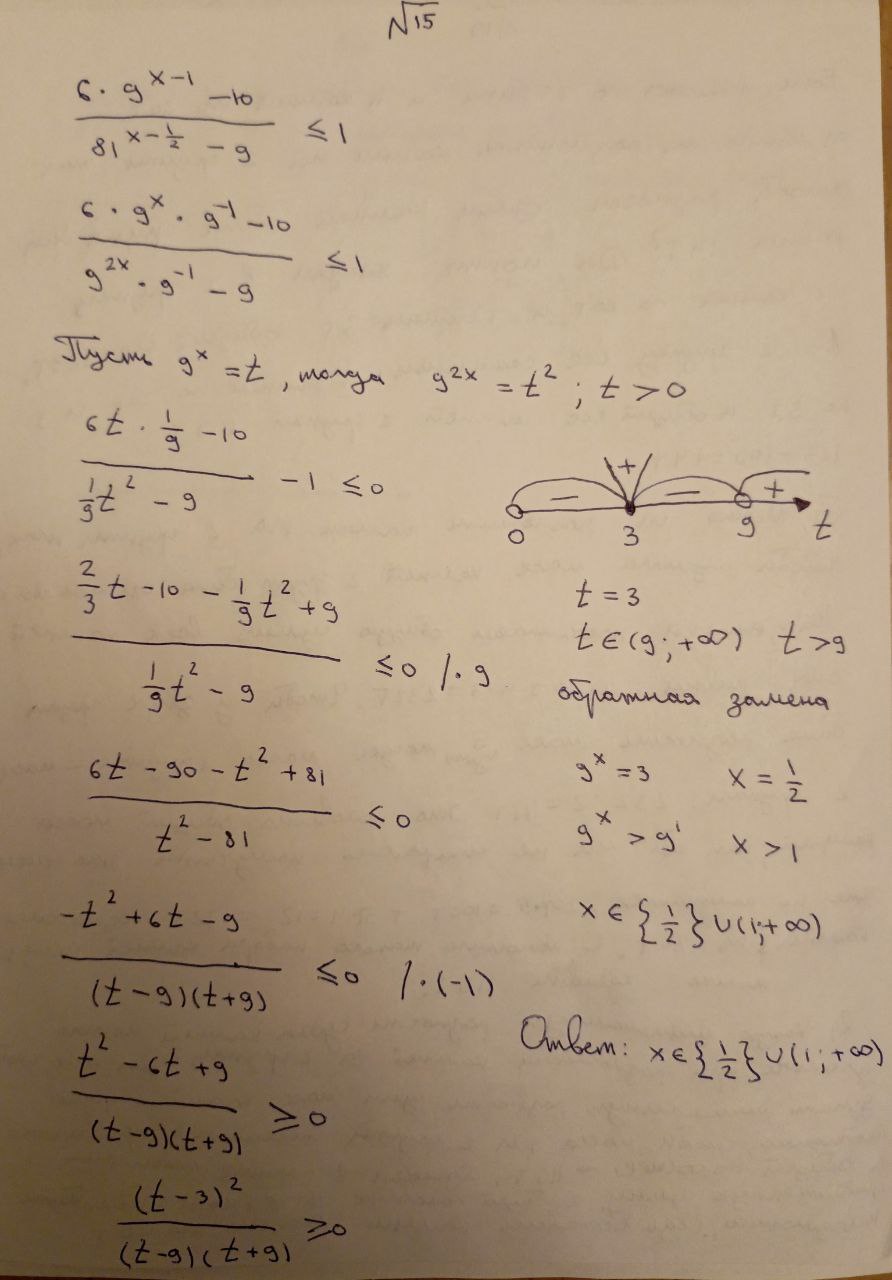 √15
(6 · 9^(x-1) - 10) / (81^(x-1/2) - 9) ≤ 1
(6 · 9^x · 9^(-1) - 10) / (9^(2x) · 9^(-1) - 9) ≤ 1
Пусть 9^x = t, тогда 9^(2x) = t^2 ; t > 0
(6t · 1/9 - 10) / (1/9 t^2 - 9) - 1 ≤ 0
(2/3 t - 10 - 1/9 t^2 + 9) / (1/9 t^2 - 9) ≤ 0 /· 9
(6t - 90 - t^2 + 81) / (t^2 - 81) ≤ 0
(-t^2 + 6t - 9) / ((t-9)(t+9)) ≤ 0 /·(-1)
(t^2 - 6t + 9) / ((t-9)(t+9)) ≥ 0
(t-3)^2 / ((t-9)(t+9)) ≥ 0
- + - +
0 3 9 t
t = 3
t ∈ (9; +∞) t > 9
обратная замена
9^x = 3 x = 1/2
9^x > 9^1 x > 1
x ∈ {1/2} ∪ (1; +∞)
Ответ: x ∈ {1/2} ∪ (1; +∞)